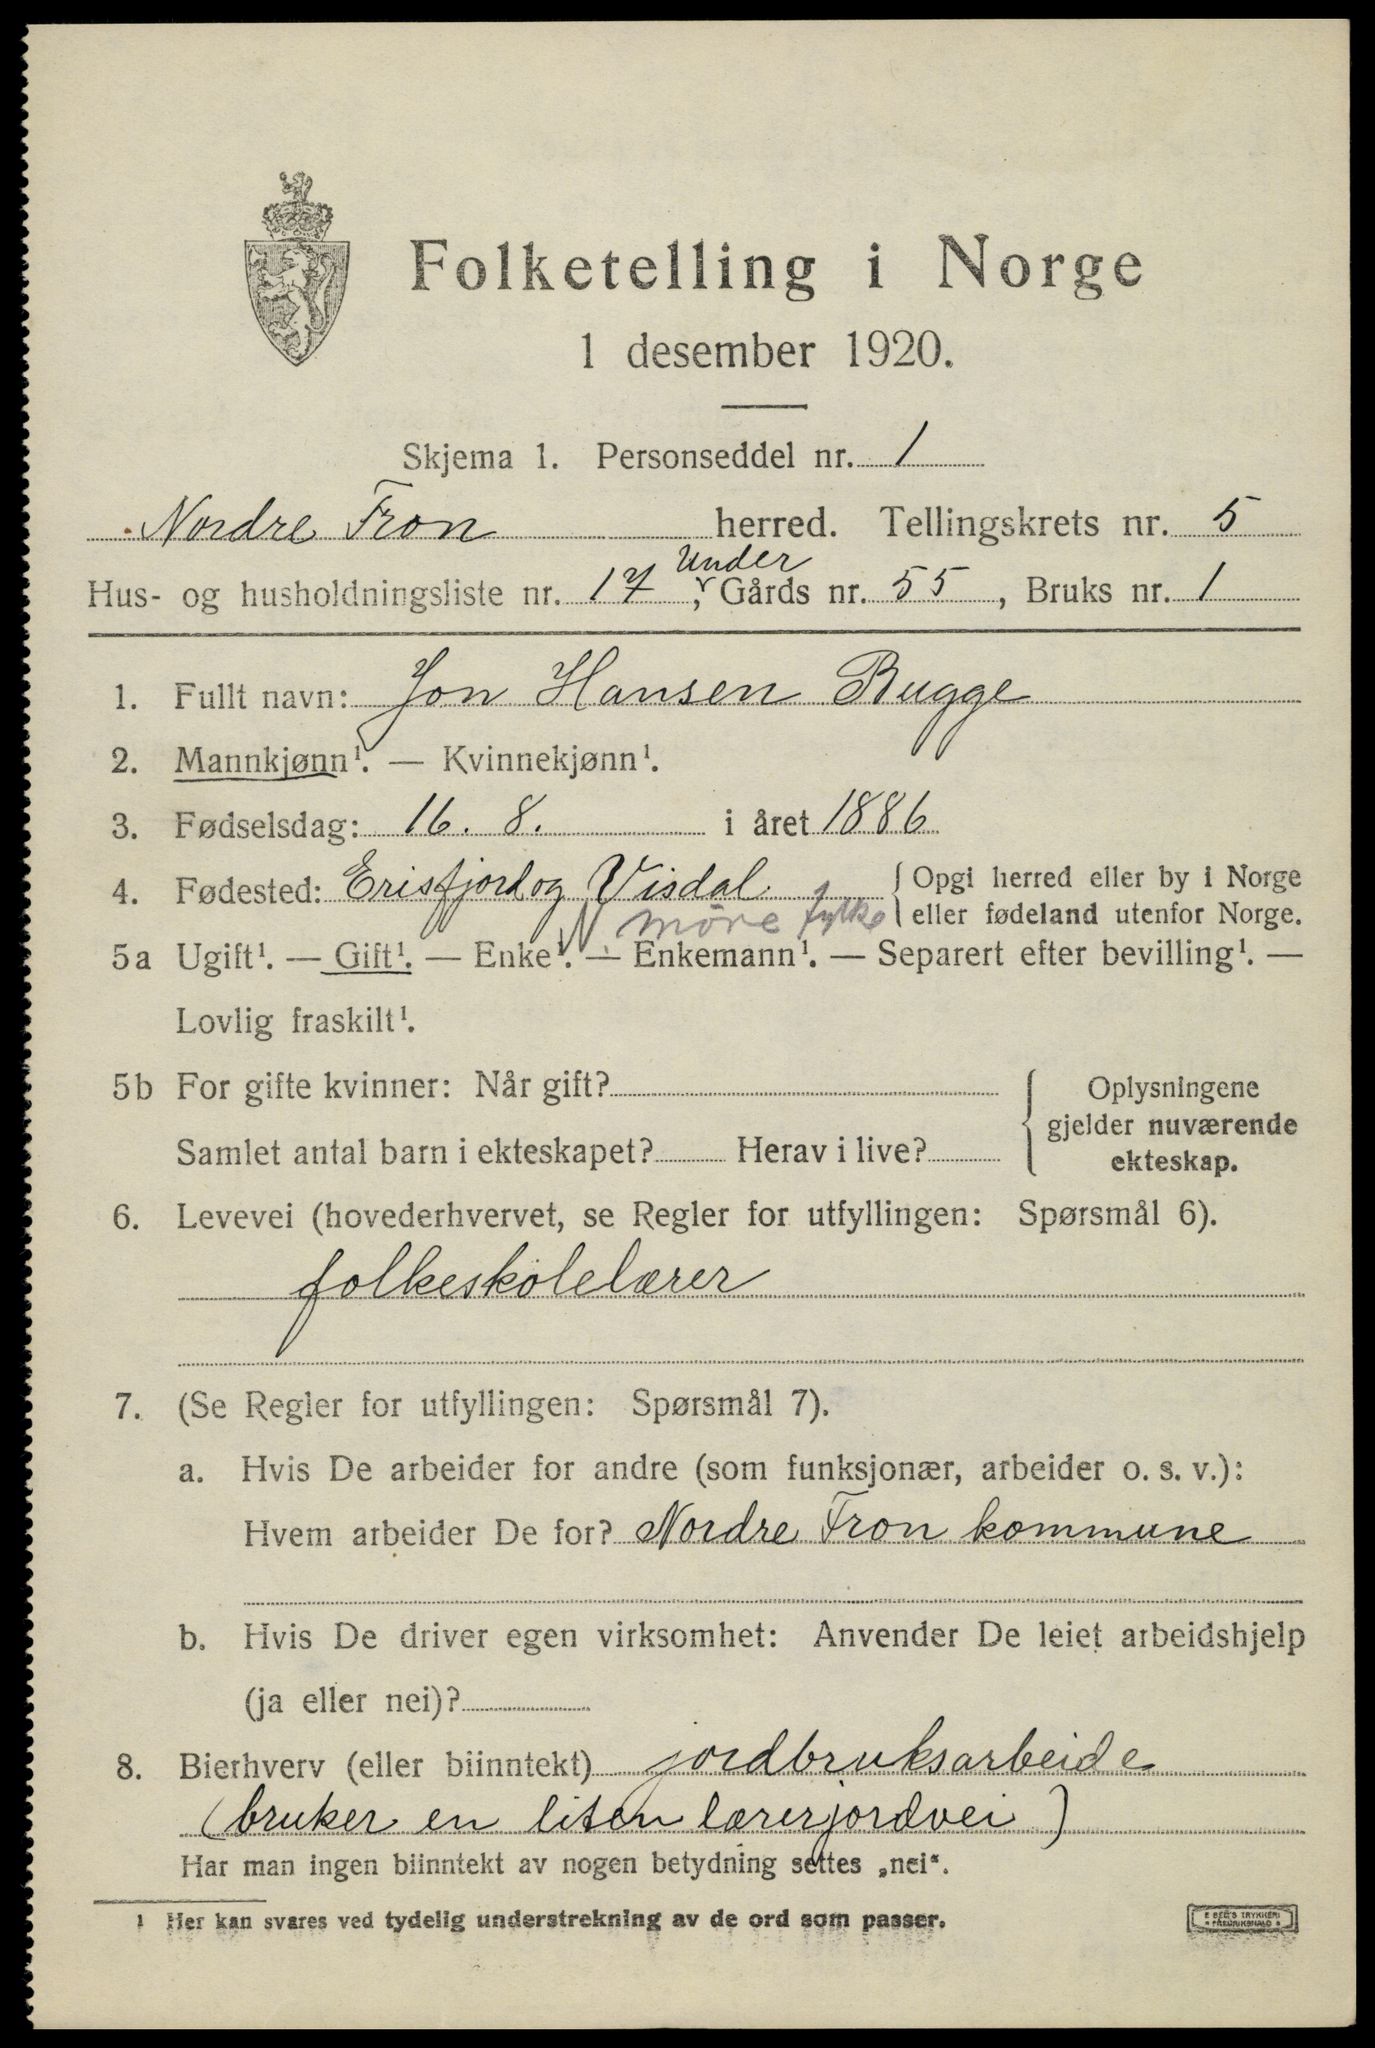 Folketelling i Norge
1 desember 1920.
Skjema 1. Personseddel nr. 1
Nordre Fron herred. Tellingskrets nr. 5
Under
Hus- og husholdningsliste nr. 17, Gårds nr. 55, Bruks nr. 1
1. Fullt navn: Jon Hansen Bugge
2. Mannkjønn¹. — Kvinnekjønn¹.
3. Fødselsdag: 16. 8. i året 1886
4. Fødested: Erisfjord og Visdal { Opgi herred eller by i Norge
N. møre fylke eller fødeland utenfor Norge.
5a Ugift¹. — Gift¹. — Enke¹. — Enkemann¹. — Separert efter bevilling¹. —
Lovlig fraskilt¹.
5b For gifte kvinner: Når gift? { Oplysningene
gjelder nuværende
Samlet antal barn i ekteskapet? Herav i live? ekteskap.
6. Levevei (hovederhvervet, se Regler for utfyllingen: Spørsmål 6).
folkeskolelærer
7. (Se Regler for utfyllingen: Spørsmål 7).
a. Hvis De arbeider for andre (som funksjonær, arbeider o. s. v.):
Hvem arbeider De for? Nordre Fron kommune
b. Hvis De driver egen virksomhet: Anvender De leiet arbeidshjelp
(ja eller nei)?
8. Bierhverv (eller biinntekt) jordbruksarbeide
(bruker en liten lærerjordvei)
Har man ingen biinntekt av nogen betydning settes „nei“.
1 Her kan svares ved tydelig understrekning av de ord som passer.
E SEG'S TRYKKERI
FREDRIKSHALD